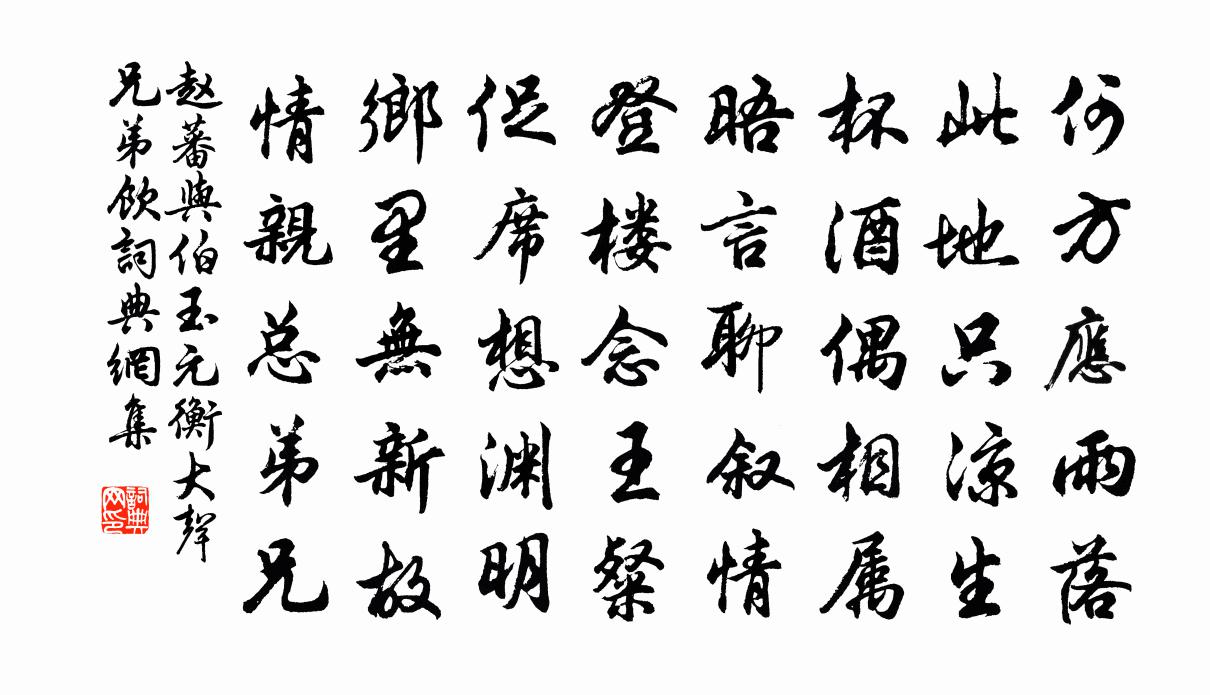 何方應雨落
此地只凉生
杯酒偶相属
晤言聊叙情
登楼念王粲
促席想渊明
鄉里無新故
情親总弟兄
赵蕃與伯玉元衡大聲
兄弟飲詞典網集
詞典网印